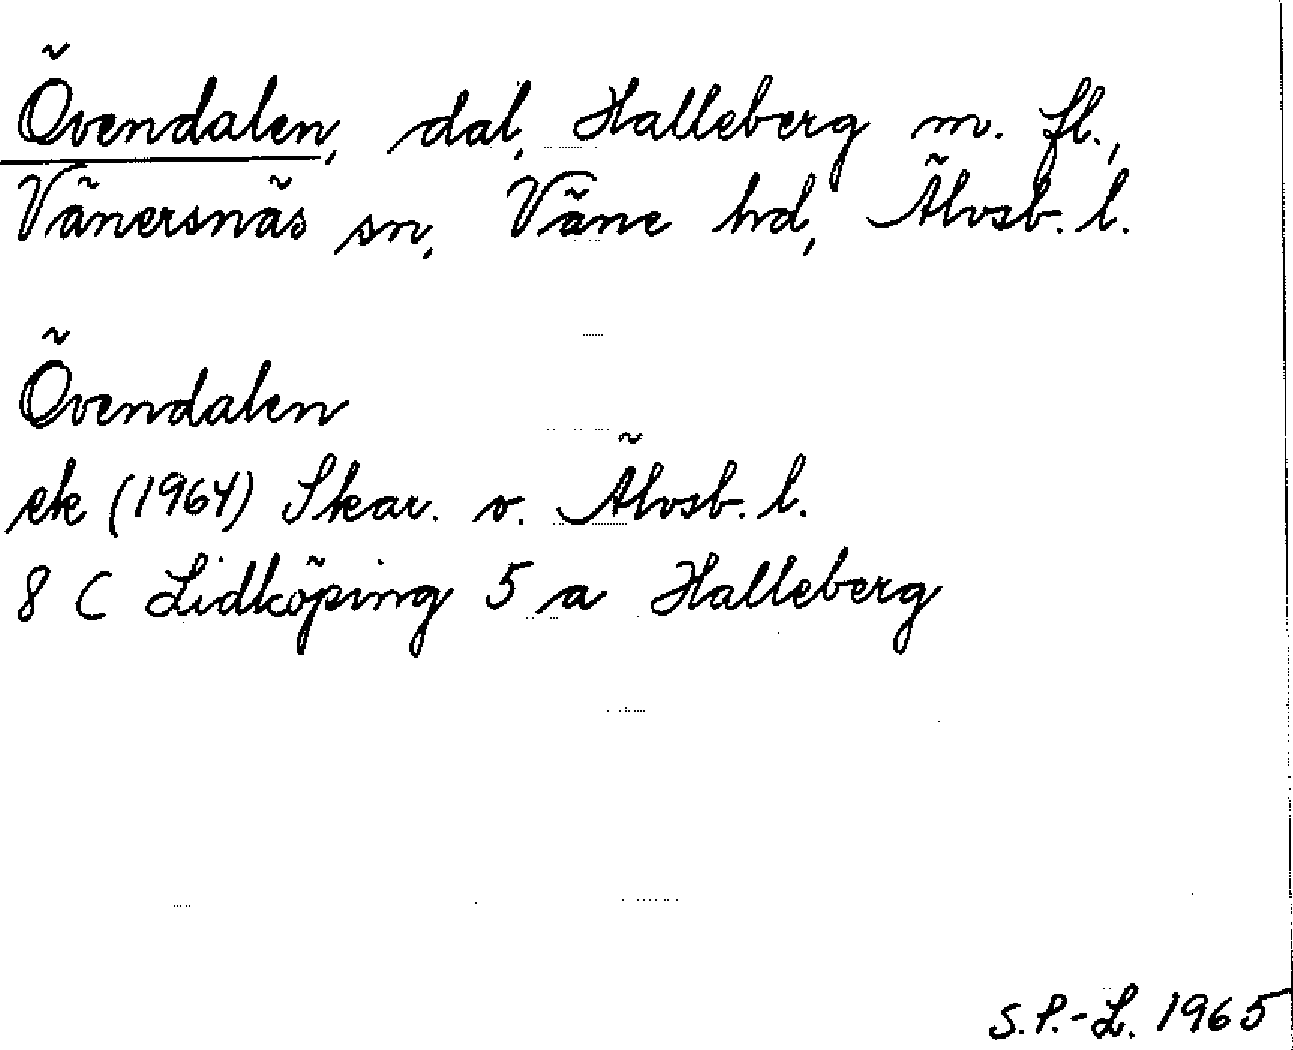 Övendalen, dal, Halleberg m. fl.,
Vänersnäs sn, Väne hd, Älvsb. l.
Övendalen
ek (1964) Skar. o. Älvsb. l.
8 C Lidköping 5 a Halleberg
S.P.-L. 1965